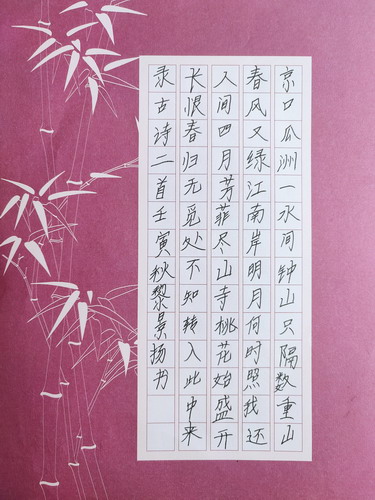 京口瓜洲一水间钟山只隔数重山
春风又绿江南岸明月何时照我还
人间四月芳菲尽山寺桃花始盛开
长恨春归无觅处不知转入此中来
录古诗二首壬寅秋黎景扬书